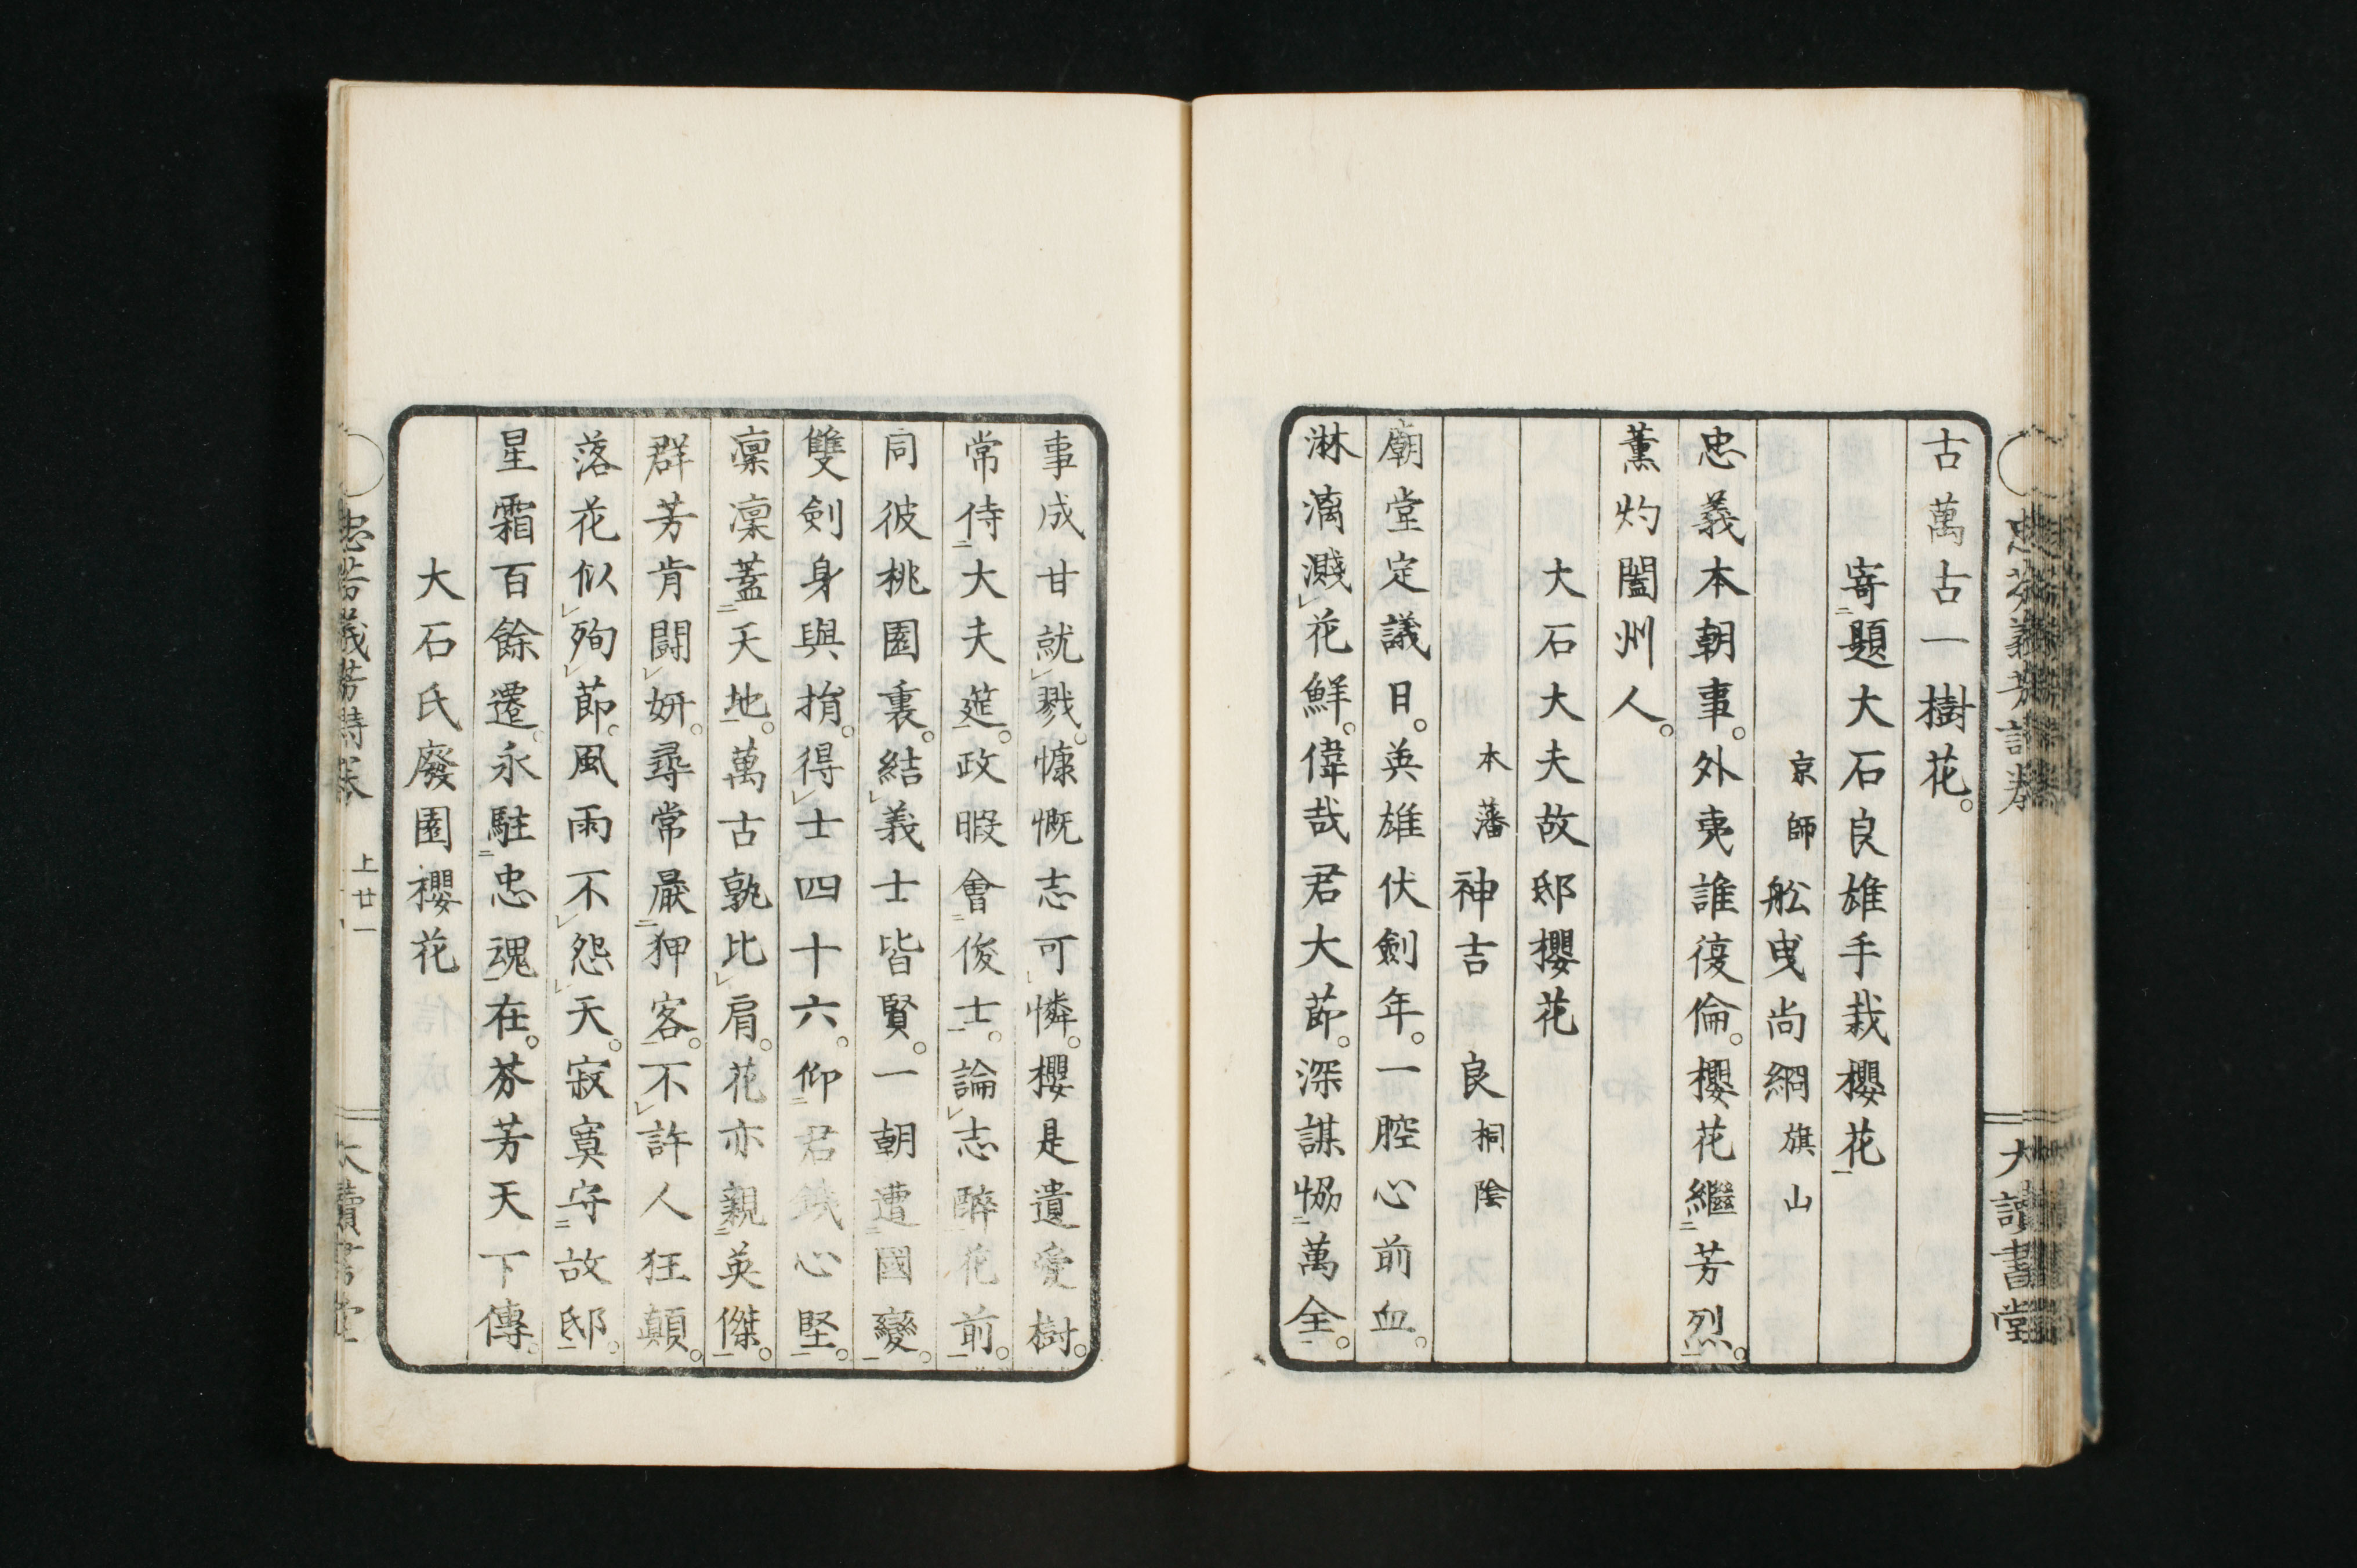 古萬古一樹花。
寄題大石良雄手栽櫻花
京師 舩曳尚絅 旗山
忠義本朝事。外夷誰復倫。櫻花繼芳烈。
薰灼闔州人。
大石大夫故邸櫻花
本藩 神吉 良 桐陰
廟堂定議日。英雄伏劍年。一腔心前血。
淋漓濺花鮮。偉哉君大節。深謀恊萬全。
忠芬義芳詩卷
大讀書堂
事成甘就戮。慷慨志可憐。櫻是遺愛樹。
常侍大夫筵。政暇會俊士。論志醉花前。
同彼桃園裏。結義士皆賢。一朝遭國變。
雙劍身與捐。得士四十六。仰君鐵心堅。
凜凜蓋天地。萬古孰比肩。花亦親英傑。
群芳肯鬪妍。尋常嚴狎客。不許人狂顛。
落花似殉節。風雨不怨天。寂寞守故邸。
星霜百餘遷。永駐忠魂在。芬芳天下傳。
大石氏廢園櫻花
忠芬義芳詩卷 上 廿一
大讀書堂